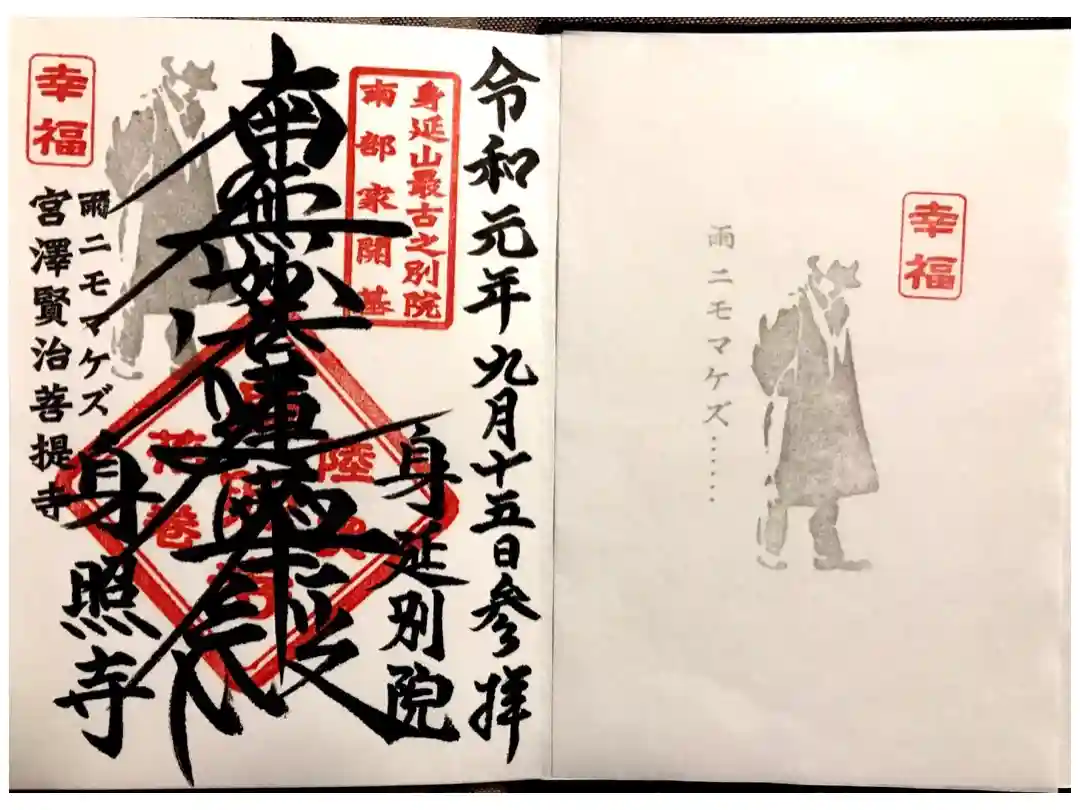 幸福
雨ニモマケズ……
令和元年九月十五日参拝
身延山最古之別院
南部家開基
身延別院
南無妙法蓮華経
陸
花巻
身照寺
幸福
雨ニモマケズ
宮澤賢治菩提寺